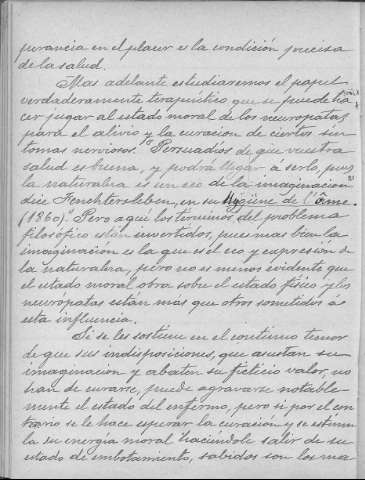 perancia en el placer es la condición precisa
de la salud.
Mas adelante estudiaremos el papel
verdaderamente terapéutico que se puede ha
cer jugar al estado moral de los neuropatas
para el alivio y la curacion de ciertos sin
tomas nerviosos. "Persuadíos de que vuestra
salud es buena, y podrá llegar á serlo, pues
la naturaleza es un eco de la imaginacion"
dice Fenchtersleben, en su Hygiene de l'Âme.
(1860). Pero aqui los terminos del problema
filosófico están invertidos, pues mas bien la
imaginación es la que es el eco y expresión de
la naturaleza, pero no es menos evidente que
el estado moral obra sobre el estado físico y los
neurópatas están más que otros sometidos á
esta influencia.
Si se les sostiene en el contínuo temor
de que sus indisposiciones, que asustan su
imaginacion y abaten su ficticio valor, no
han de curarse, puede agravarse notable
mente el estado del enfermo, pero si por el con
trario se le hace esperar la curasión y se estimu
la su energía moral haciéndole salir de su
estado de embotamiento, sabidos son los ma